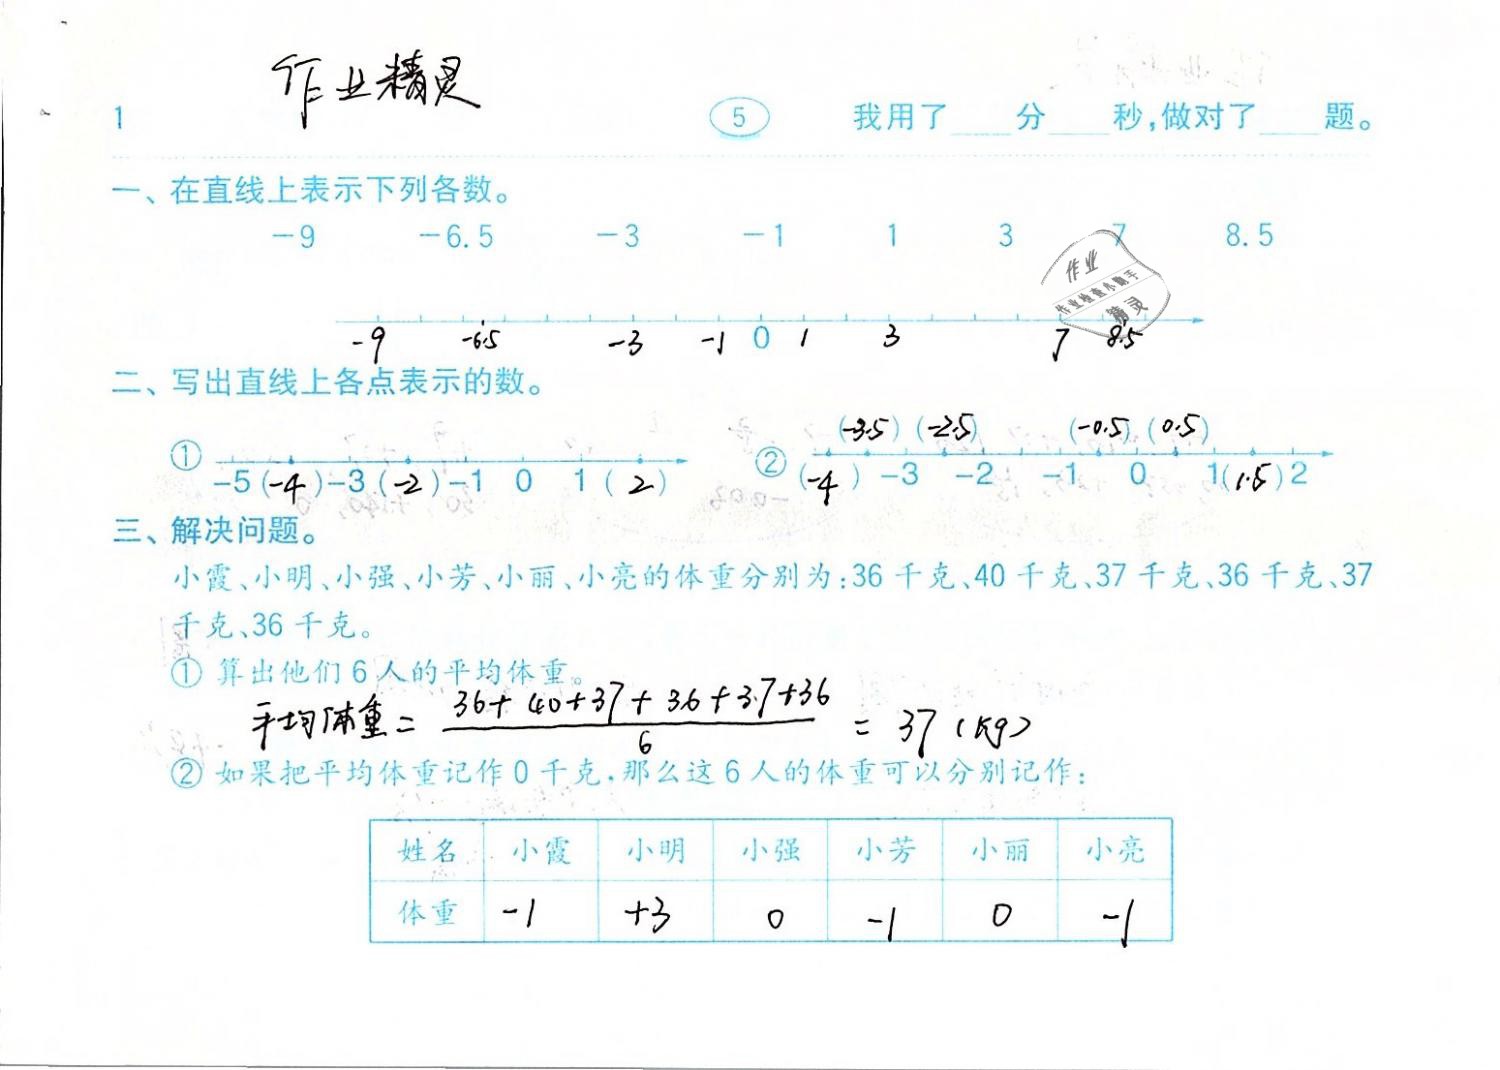 作业精灵
1 5 我用了____分____秒,做对了____题。
一、在直线上表示下列各数。
-9 -6.5 -3 -1 1 3 7 8.5
作业
作业检查小助手
精灵
-9 -6.5 -3 -1 0 1 3 7 8.5
二、写出直线上各点表示的数。
(-3.5) (-2.5) (-0.5) (0.5)
① -5 (-4) -3 (-2) -1 0 1 (2) ② (-4) -3 -2 -1 0 1 (1.5) 2
三、解决问题。
小霞、小明、小强、小芳、小丽、小亮的体重分别为:36 千克、40 千克、37 千克、36 千克、37
千克、36 千克。
① 算出他们 6 人的平均体重。
平均体重 = 36+40+37+36+37+36 / 6 = 37 (kg)
② 如果把平均体重记作 0 千克,那么这 6 人的体重可以分别记作:
姓名 小霞 小明 小强 小芳 小丽 小亮
体重 -1 +3 0 -1 0 -1